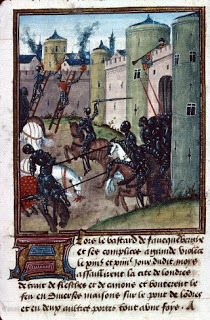 Lois le bastard de faucquebergue
et ses complices a grande violẽce
le xiiiiᵉ et
assaillirent la cite de londres
de trait de flesches et de canons et bouterent le
feu en diverses maisons sur le pont de londres
et en deux aultres portes tout a une fois . A